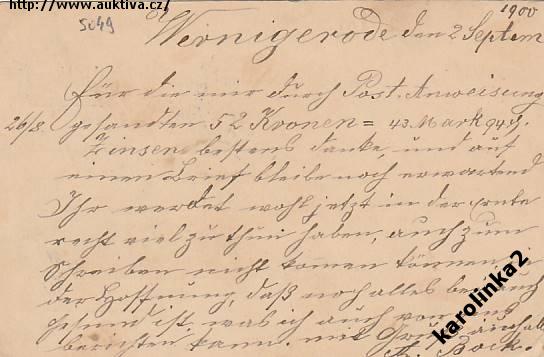 http://www.auktiva.cz/
5049
1900
Wernigerode den 2 Septem
Für die mir durch Post-Anweisung
26/8. gesandten 52 Kronen = 43 Mark 94 ₰.
Zinsen bestens danke, und auf
einen Brief bleibe noch erwartend
Ihr werdet wohl jetzt in der Ernte
recht viel zu thun haben, auch zum
Schreiben nicht komen können, in
der Hoffnung, daß noch alles bei Euch
gesund ist, was ich auch von uns
berichten kann. mit Gruß
Bock.
karolinka2